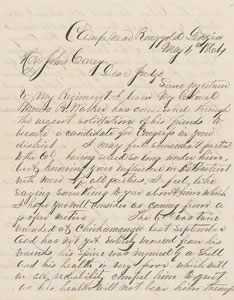 Camp Near Ringgold Georgia
May 4th 1864
Hon John Carey
Dear Judge
Since my return
to my Regiment I learn my Colonel
Moses B. Walker has consented through
the urgent solicitation of his friends to
become a candidate for Congress in your
district. I may feel somewhat partial
to the Col being so long under him,
but knowing your influence in the District
with men of all parties, I feel like
saying something to you about him which
I hope you will consider as coming from a
proper motive. The Col was twice
wounded at Chickamauga last September
and has not yet entirely recovered from his
wounds, his spine was injured by a shell
and his health is very poor which will
in all probability compel him to quit
as his health will not bear him through